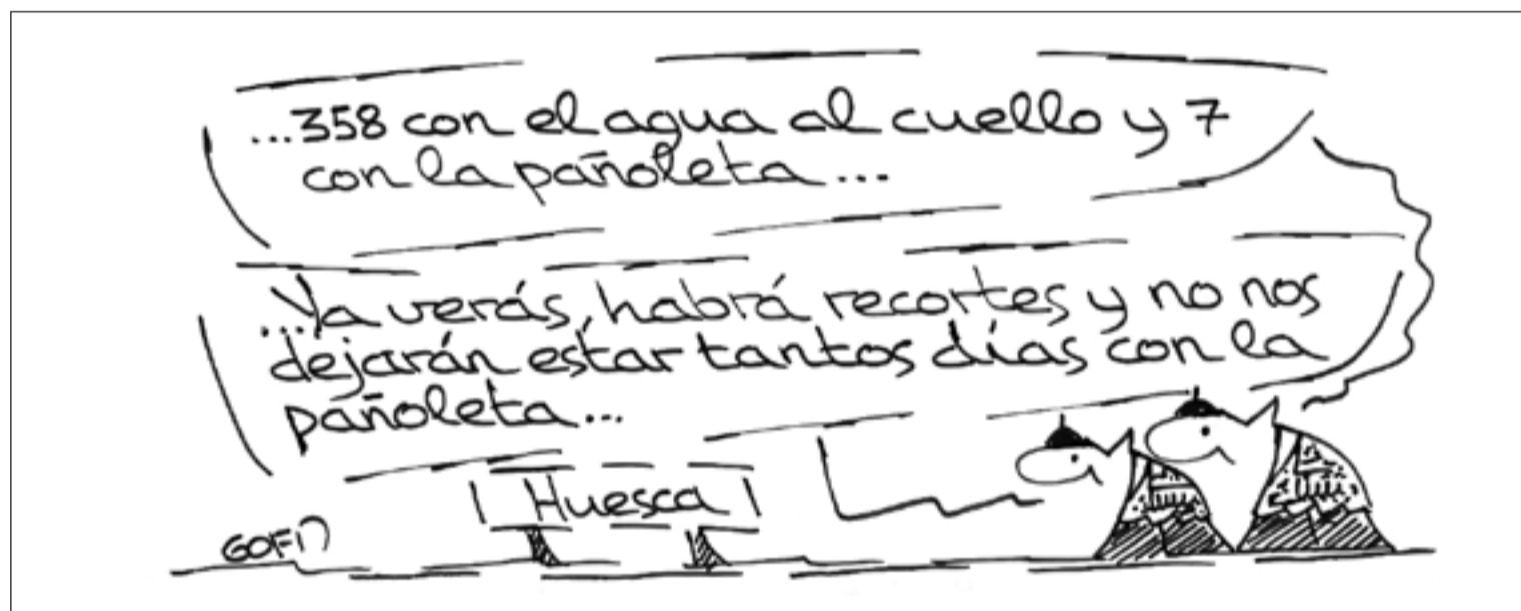 ...358 con el agua al cuello y 7
con la pañoleta...
...Ya verás, habrá recortes y no nos
dejarán estar tantos días con la
pañoleta...
Huesca
GOFI